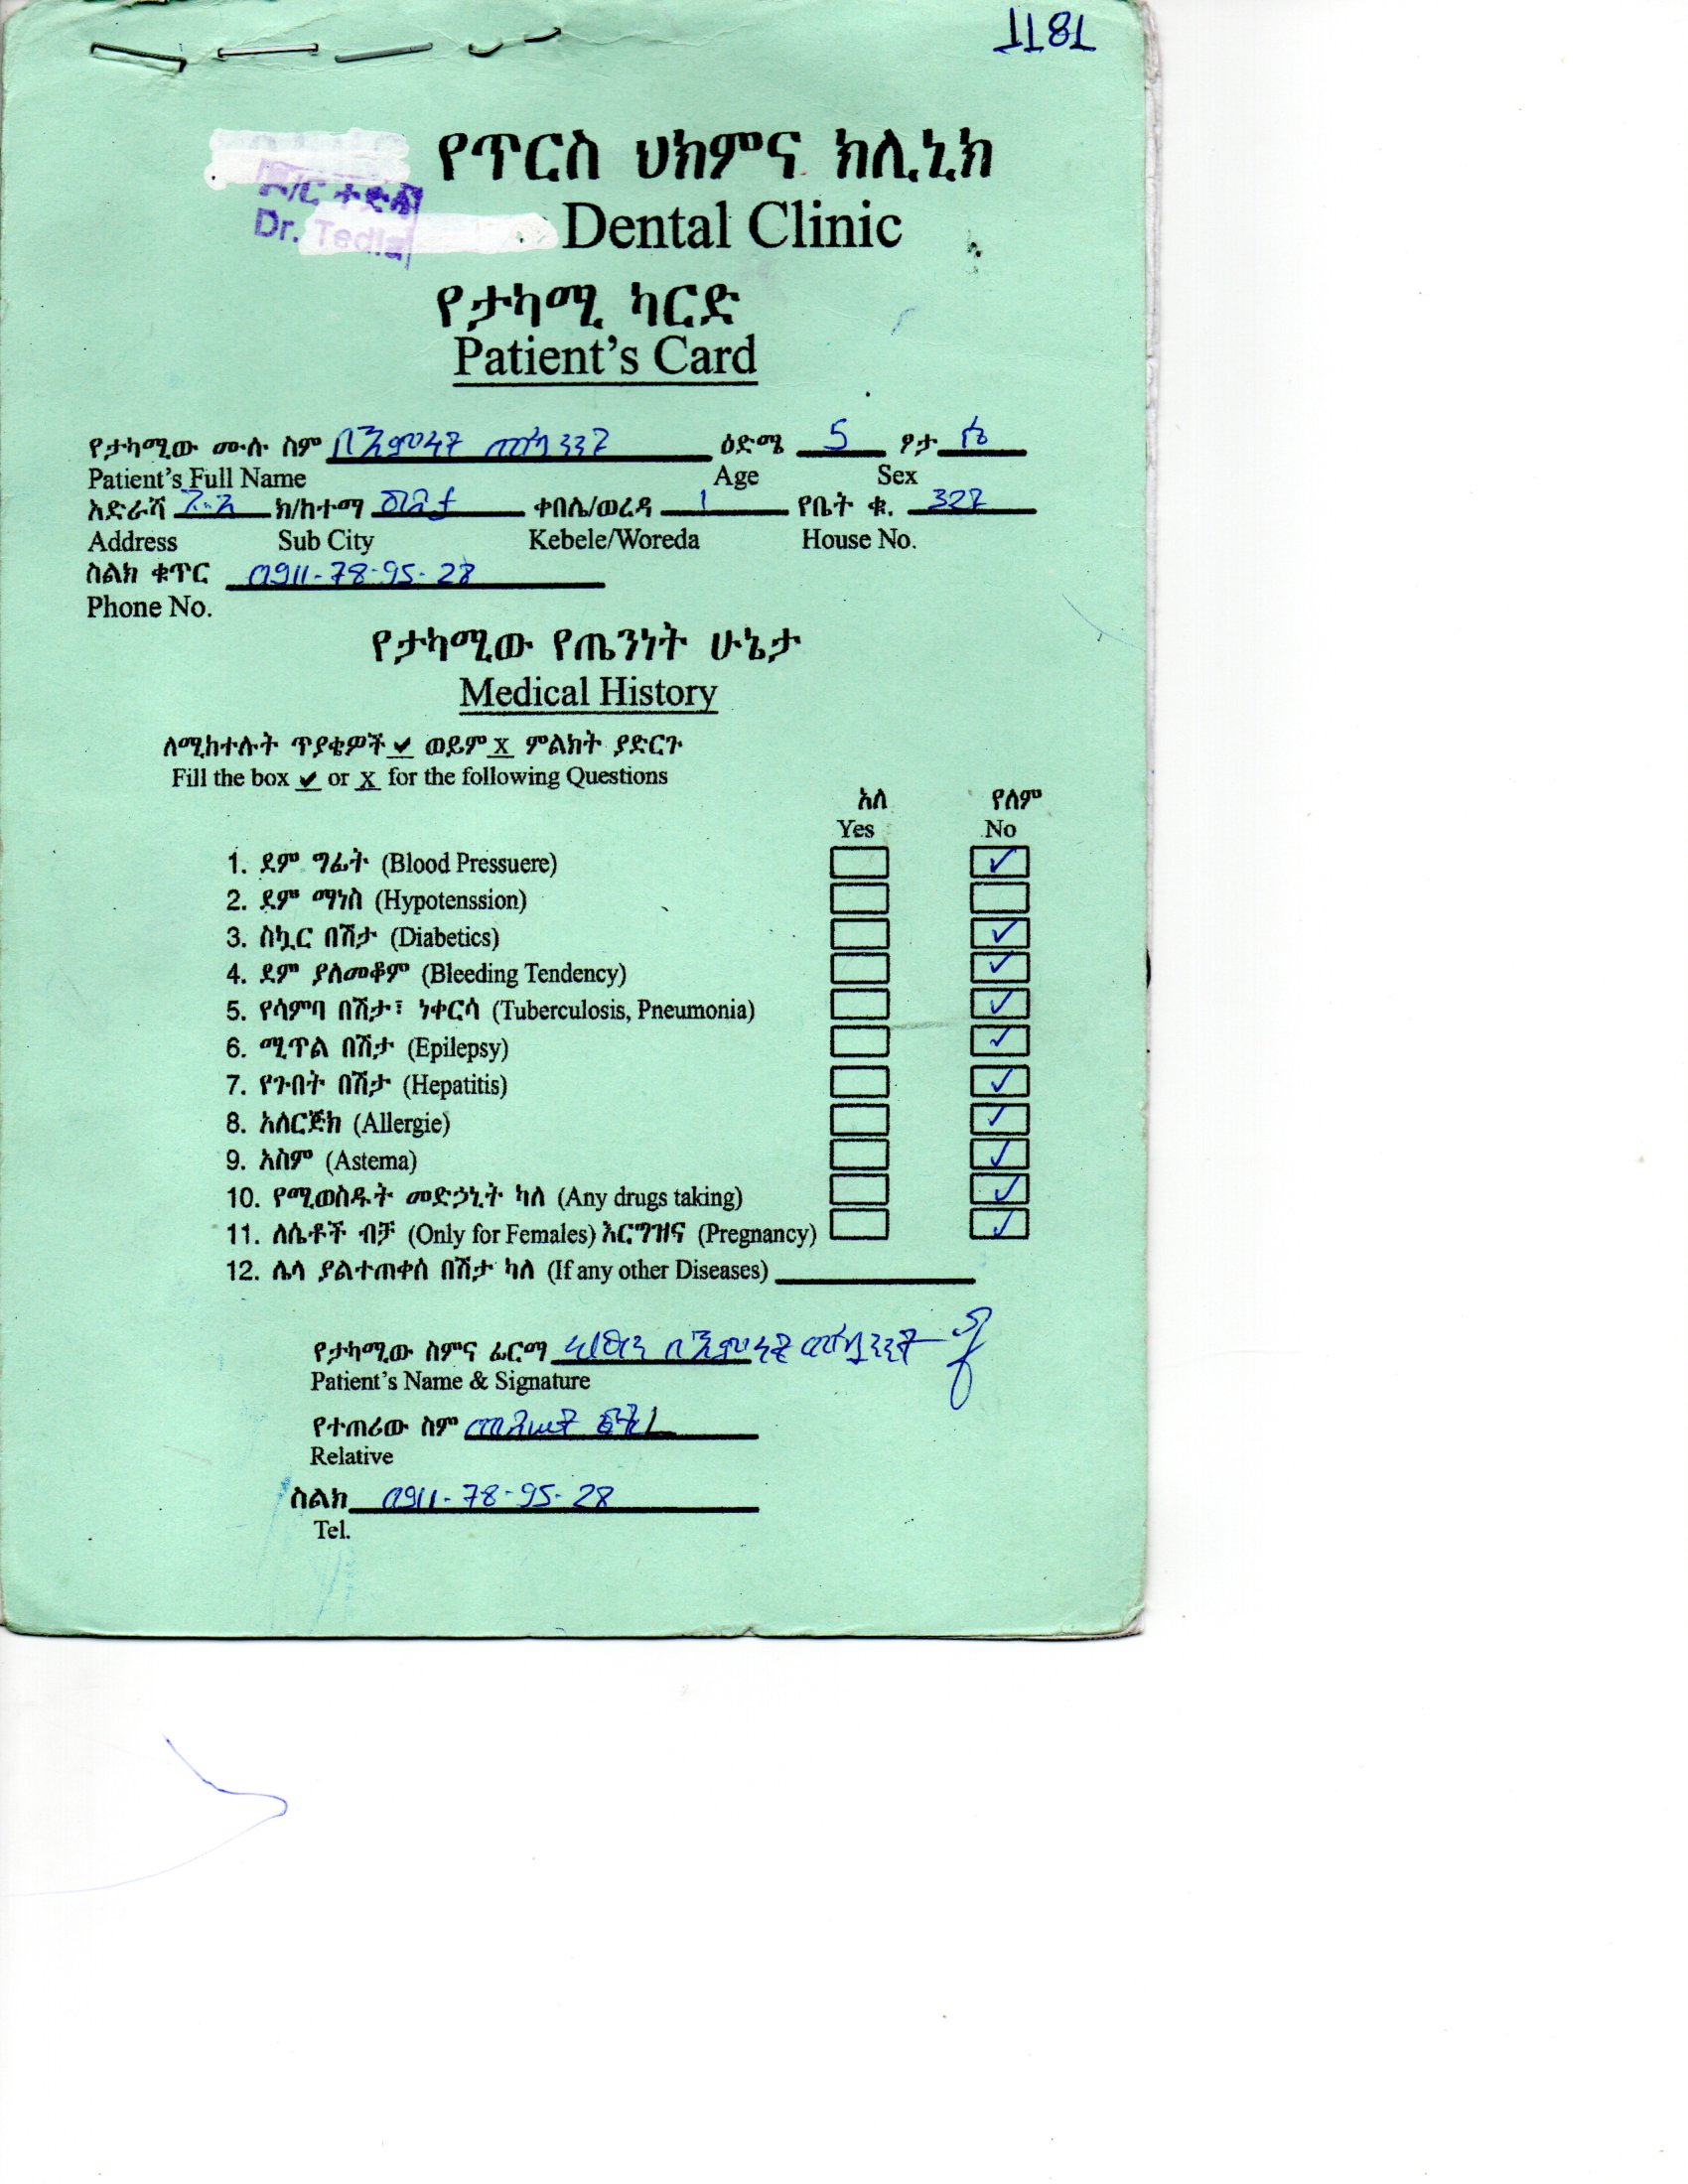 1181
የጥርስ ህክምና ክሊኒክ
ዶ/ር ተድላ
Dr. Tedla
Dental Clinic
የታካሚ ካርድ
Patient's Card
የታካሚው ሙሉ ስም በእምነት ዕድሜ 5 ፆታ ሴ
Patient's Full Name Age Sex
አድራሻ አ.አ ክ/ከተማ ቀበሌ/ወረዳ 1 የቤት ቁ. 327
Address Sub City Kebele/Woreda House No.
ስልክ ቁጥር 0911-78-95-28
Phone No.
የታካሚው የጤንነት ሁኔታ
Medical History
ለሚከተሉት ጥያቄዎች ✔ ወይም X ምልክት ያድርጉ
Fill the box ✔ or X for the following Questions
አለ የለም
Yes No
1. ደም ግፊት (Blood Pressuere) ✓
2. ደም ማነስ (Hypotenssion)
3. ስኳር በሽታ (Diabetics) ✓
4. ደም ያለመቆም (Bleeding Tendency) ✓
5. የሳምባ በሽታ፣ ነቀርሳ (Tuberculosis, Pneumonia) ✓
6. ሚጥል በሽታ (Epilepsy) ✓
7. የጉበት በሽታ (Hepatitis) ✓
8. አለርጅክ (Allergie) ✓
9. አስም (Astema) ✓
10. የሚወስዱት መድኃኒት ካለ (Any drugs taking) ✓
11. ለሴቶች ብቻ (Only for Females) እርግዝና (Pregnancy) ✓
12. ሌላ ያልተጠቀሰ በሽታ ካለ (If any other Diseases)
የታካሚው ስምና ፊርማ
Patient's Name & Signature
የተጠሪው ስም
Relative
ስልክ 0911-78-95-28
Tel.